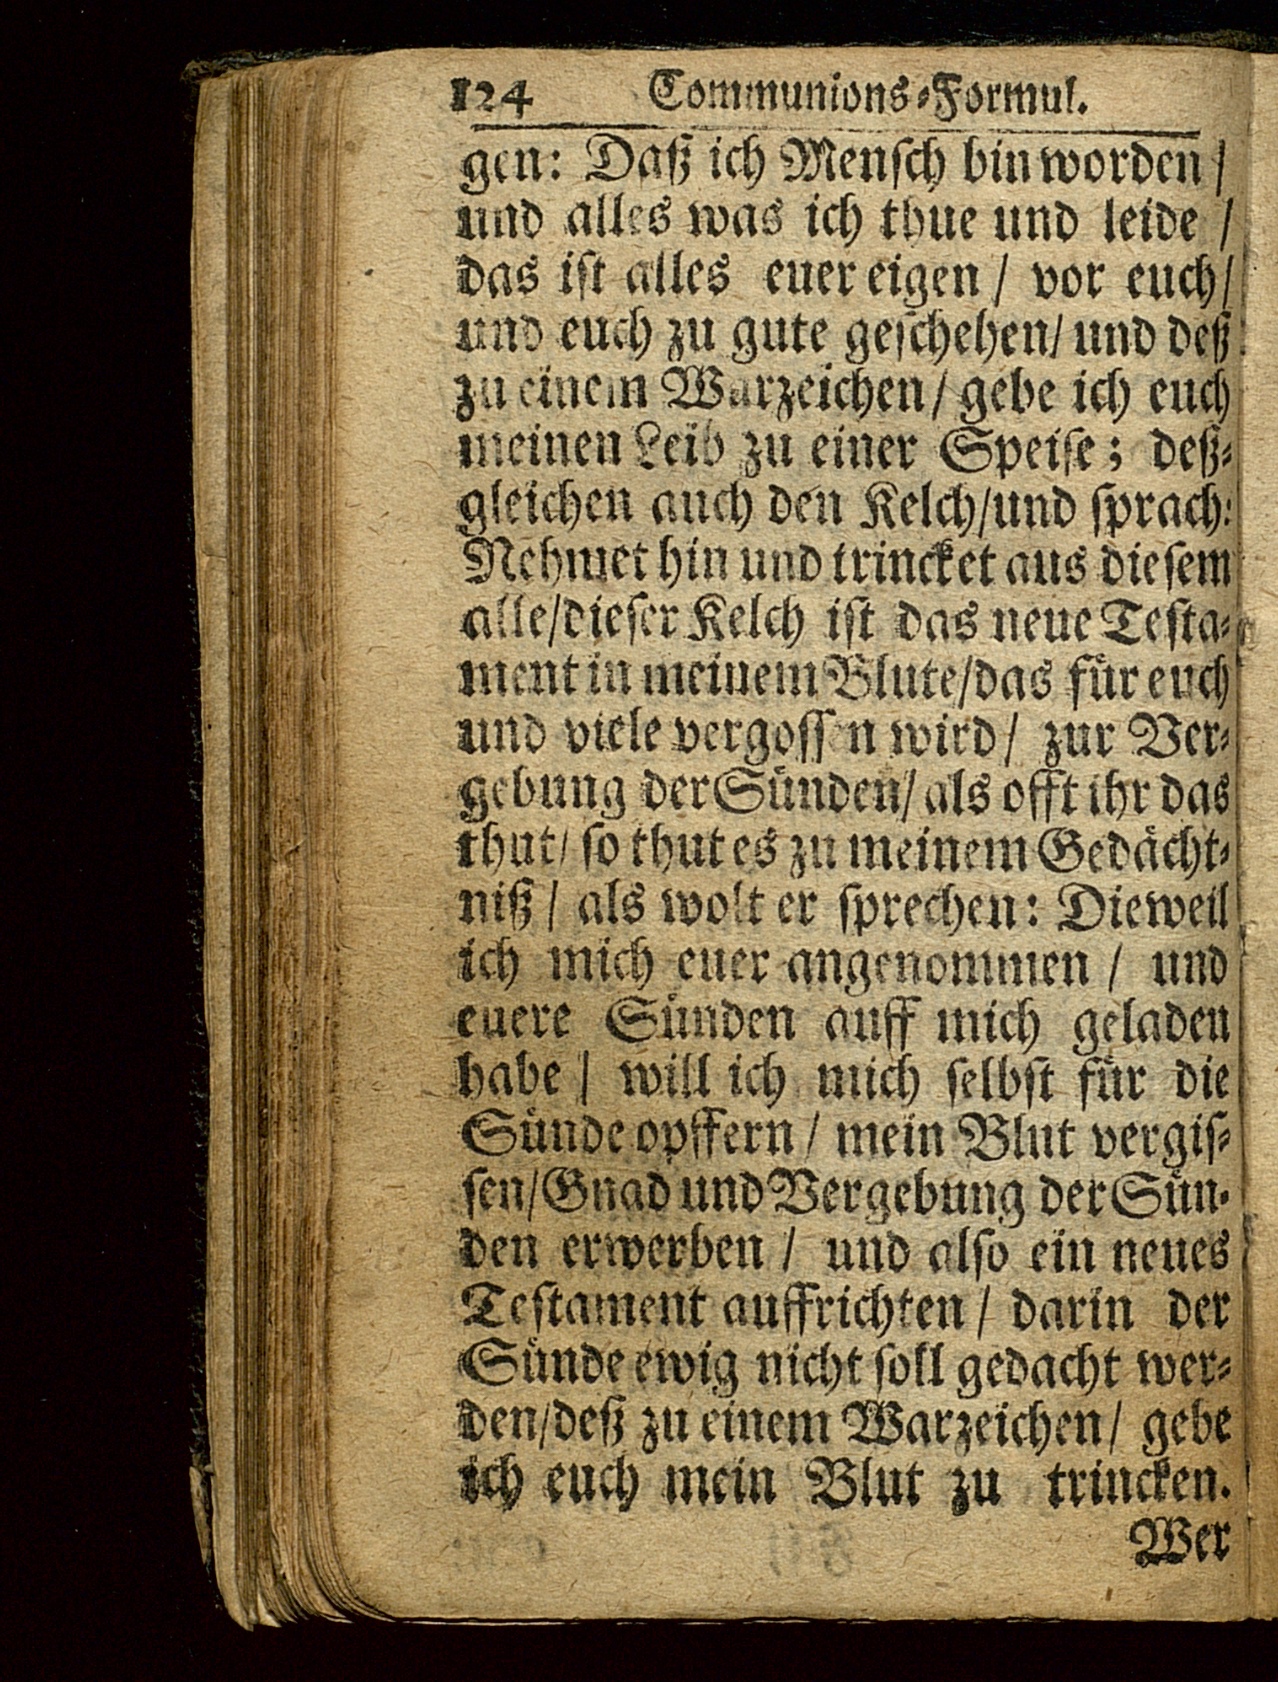 124 Communions-Formul.
gen: Daß ich Menſch bin worden /
und alles was ich thue und leide /
das iſt alles euer eigen / vor euch /
und euch zu gute geſchehen / und deß
zu einem Warzeichen / gebe ich euch
meinen Leib zu einer Speiſe; deß-
gleichen auch den Kelch / und ſprach:
Nehmet hin und trincket aus dieſem
alle / dieſer Kelch iſt das neue Teſta-
ment in meinem Blute / das fuͤr euch
und viele vergoſſen wird / zur Ver-
gebung der Suͤnden / als offt ihr das
thut / ſo thut es zu meinem Gedaͤcht-
niß / als wolt er ſprechen: Dieweil
ich mich euer angenommen / und
euere Suͤnden auff mich geladen
habe / will ich mich ſelbſt fuͤr die
Suͤnde opffern / mein Blut vergiſ-
ſen / Gnad und Vergebung der Suͤn-
den erwerben / und alſo ein neues
Teſtament auffrichten / darin der
Suͤnde ewig nicht ſoll gedacht wer-
den / deß zu einem Warzeichen / gebe
ich euch mein Blut zu trincken.
Wer